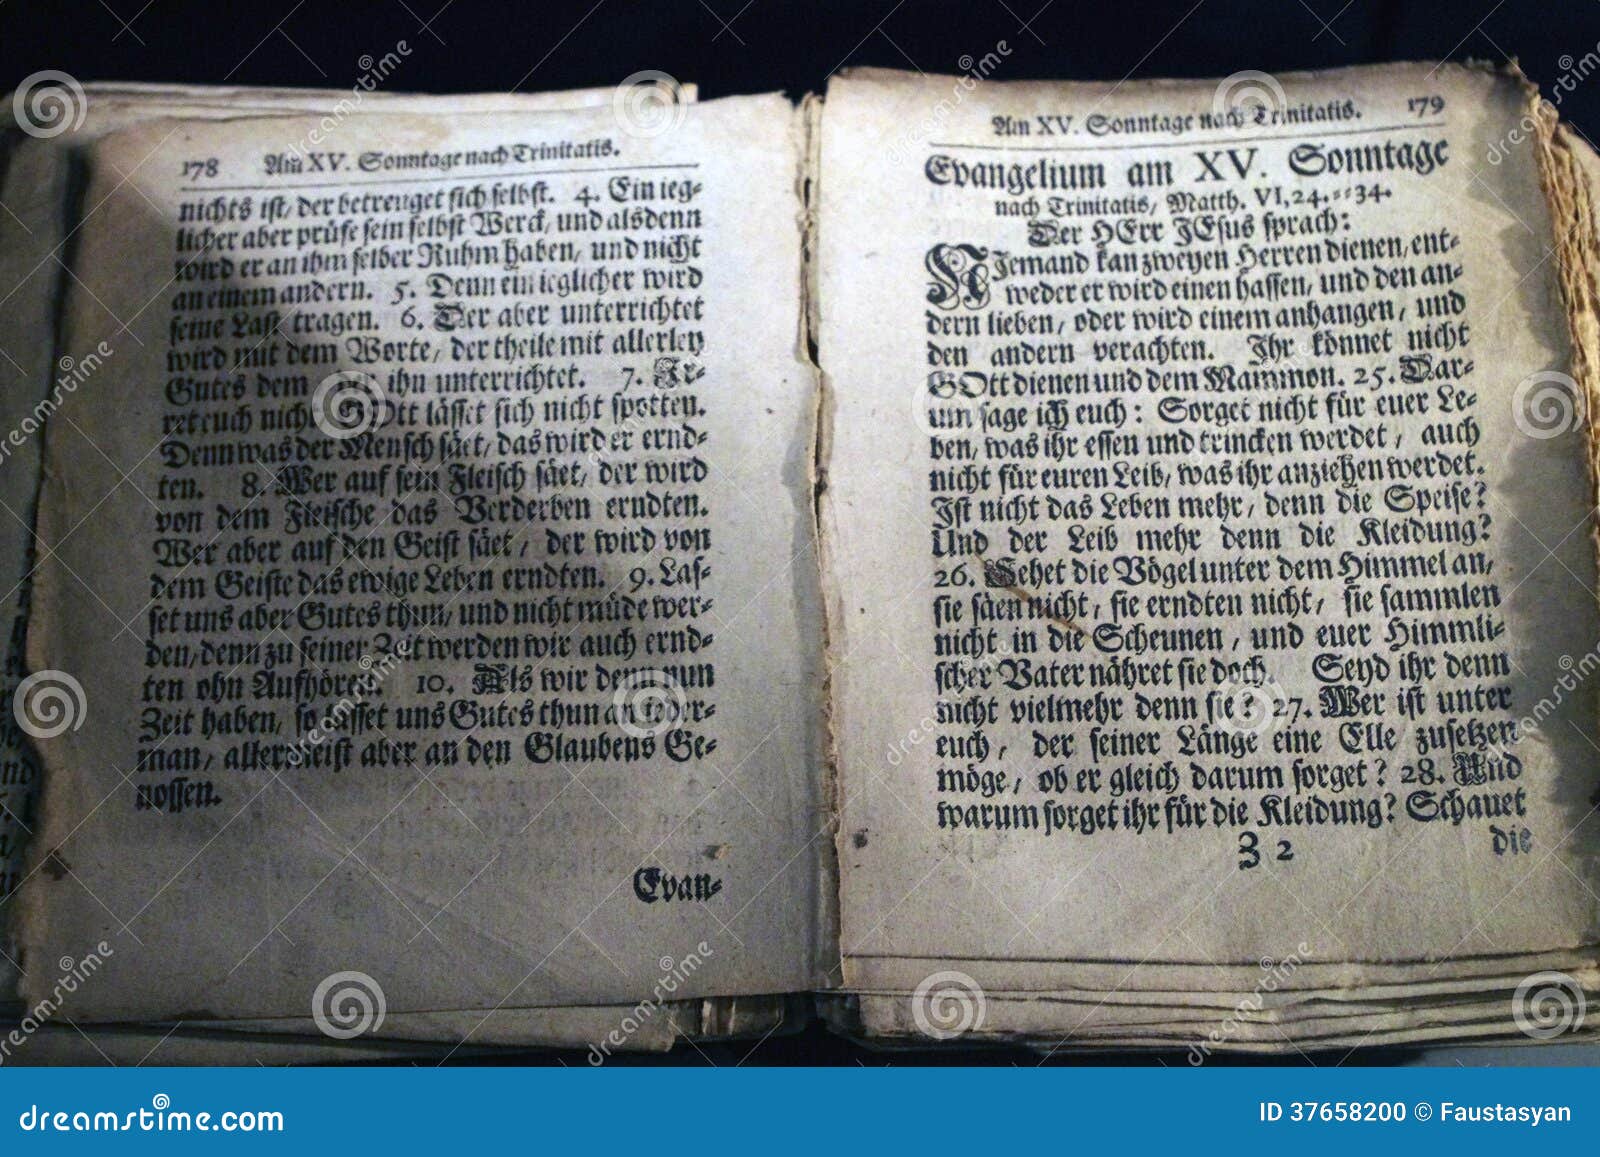 178 Am XV. Sonntage nach Trinitatis.
nichts ist/ der betreuget sich selbst. 4. Ein ieg-
licher aber prüfe sein selbst Werck, und alsdenn
wird er an ihm selber Ruhm haben, und nicht
an einem andern. 5. Denn ein ieglicher wird
seine Last tragen. 6. Der aber unterrichtet
wird mit dem Worte, der theile mit allerley
Gutes dem der ihn unterrichtet. 7. Ir-
ret euch nicht GOtt lässet sich nicht spotten.
Denn was der Mensch säet, das wird er ernd-
ten. 8. Wer auf sein Fleisch säet, der wird
von dem Fleische das Verderben erndten.
Wer aber auf den Geist säet, der wird von
dem Geiste das ewige Leben erndten. 9. Las-
set uns aber Gutes thun, und nicht müde wer-
den, denn zu seiner Zeit werden wir auch ernd-
ten ohn Aufhören. 10. Als wir denn nun
Zeit haben, so lasset uns Gutes thun an ieder-
man, allermeist aber an den Glaubens Ge-
nossen.
Evan-
Am XV. Sonntage nach Trinitatis. 179
Evangelium am XV. Sonntage
nach Trinitatis/ Matth. VI, 24.--34.
Der HErr JEsus sprach:
NIemand kan zweyen Herren dienen, ent-
weder er wird einen hassen, und den an-
dern lieben, oder wird einem anhangen, und
den andern verachten. Ihr könnet nicht
GOtt dienen und dem Mammon. 25. Dar-
um sage ich euch: Sorget nicht für euer Le-
ben, was ihr essen und trincken werdet, auch
nicht für euren Leib, was ihr anziehen werdet.
Ist nicht das Leben mehr, denn die Speise?
Und der Leib mehr denn die Kleidung?
26. Sehet die Vögel unter dem Himmel an,
sie säen nicht, sie erndten nicht, sie sammlen
nicht in die Scheunen, und euer Himmli-
scher Vater nähret sie doch. Seyd ihr denn
nicht vielmehr denn sie? 27. Wer ist unter
euch, der seiner Länge eine Elle zusetzen
möge, ob er gleich darum sorget? 28. Und
warum sorget ihr für die Kleidung? Schauet
Z 2 die
dreamstime.com
ID 37658200 © Faustasyan